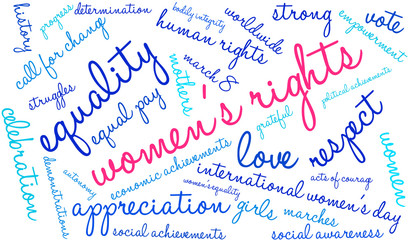 history
progress
determination
bodily integrity
worldwide
strong
vote
call for change
human rights
empowerment
struggles
equality
mothers
march 8
women's rights
political achievements
equal pay
grateful
celebration
demonstrations
autonomy
economic achievements
women's equality
love
respect
women
acts of courage
international women's day
appreciation
girls
marches
social achievements
social awareness